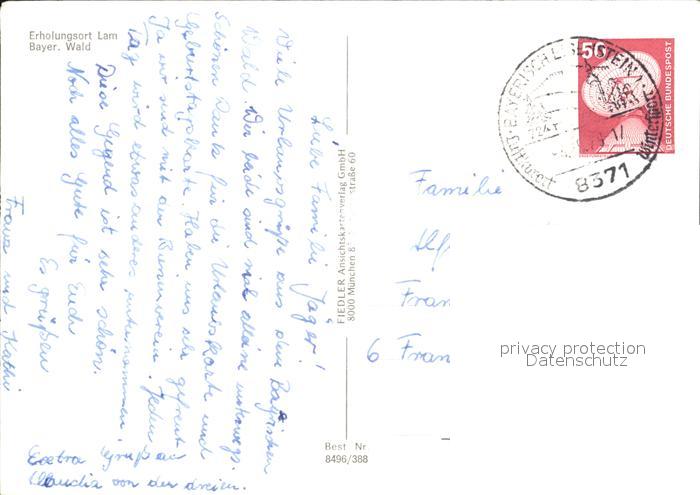 Erholungsort Lam
Bayer. Wald
Liebe Familie Jäger!
Viele Urlaubsgrüße aus dem Bayrischen
Wald. Wir beide sind mal alleine unterwegs.
Schönen Dank für die Urlaubskarte und
Geburtstagskarte. Haben uns sehr gefreut
Ja wir sind mit dem Bienenverein. Jeden
Tag wird etwas anderes unternommen.
Diese Gegend ist sehr schön.
Noch alles Gute für Euch
Es grüßen
Franz und Kathi
Extra Gruß an
Claudia von den dreien.
FIEDLER Ansichtskartenverlag GmbH
8000 München 8 straße 60
Best Nr
8496/388
50
DEUTSCHE BUNDESPOST
BAYERISCH EISENSTEIN 1
Luftkurort
Wintersport
8371
Familie
Alf
Fran
6 Fran
privacy protection
Datenschutz